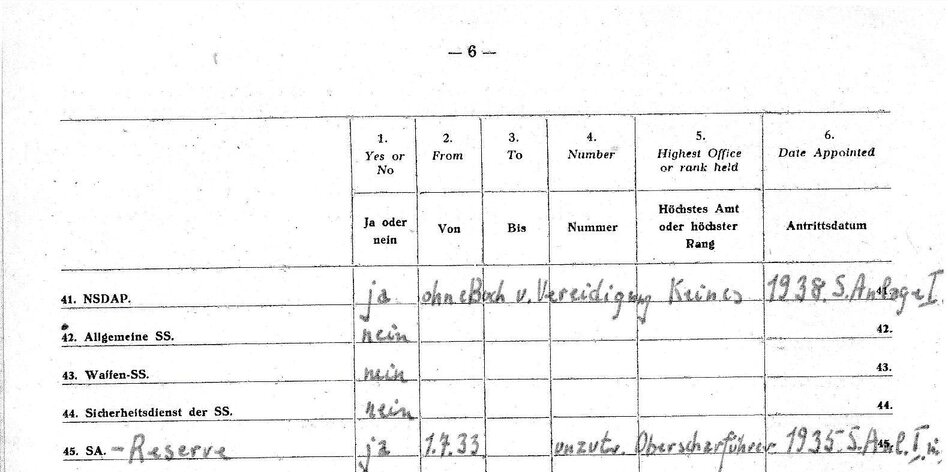 — 6 —
1. 2. 3. 4. 5. 6.
Yes or No From To Number Highest Office or rank held Date Appointed
Ja oder nein Von Bis Nummer Höchstes Amt oder höchster Rang Antrittsdatum
41. NSDAP. ja ohne Buch u. Vereidigung Keines 1938 S. Anlage I. 41.
42. Allgemeine SS. nein 42.
43. Waffen-SS. nein 43.
44. Sicherheitsdienst der SS. nein 44.
45. SA. - Reserve ja 1.7.33 unzutr. Oberscharführer 1935 S. Anl. I 45.